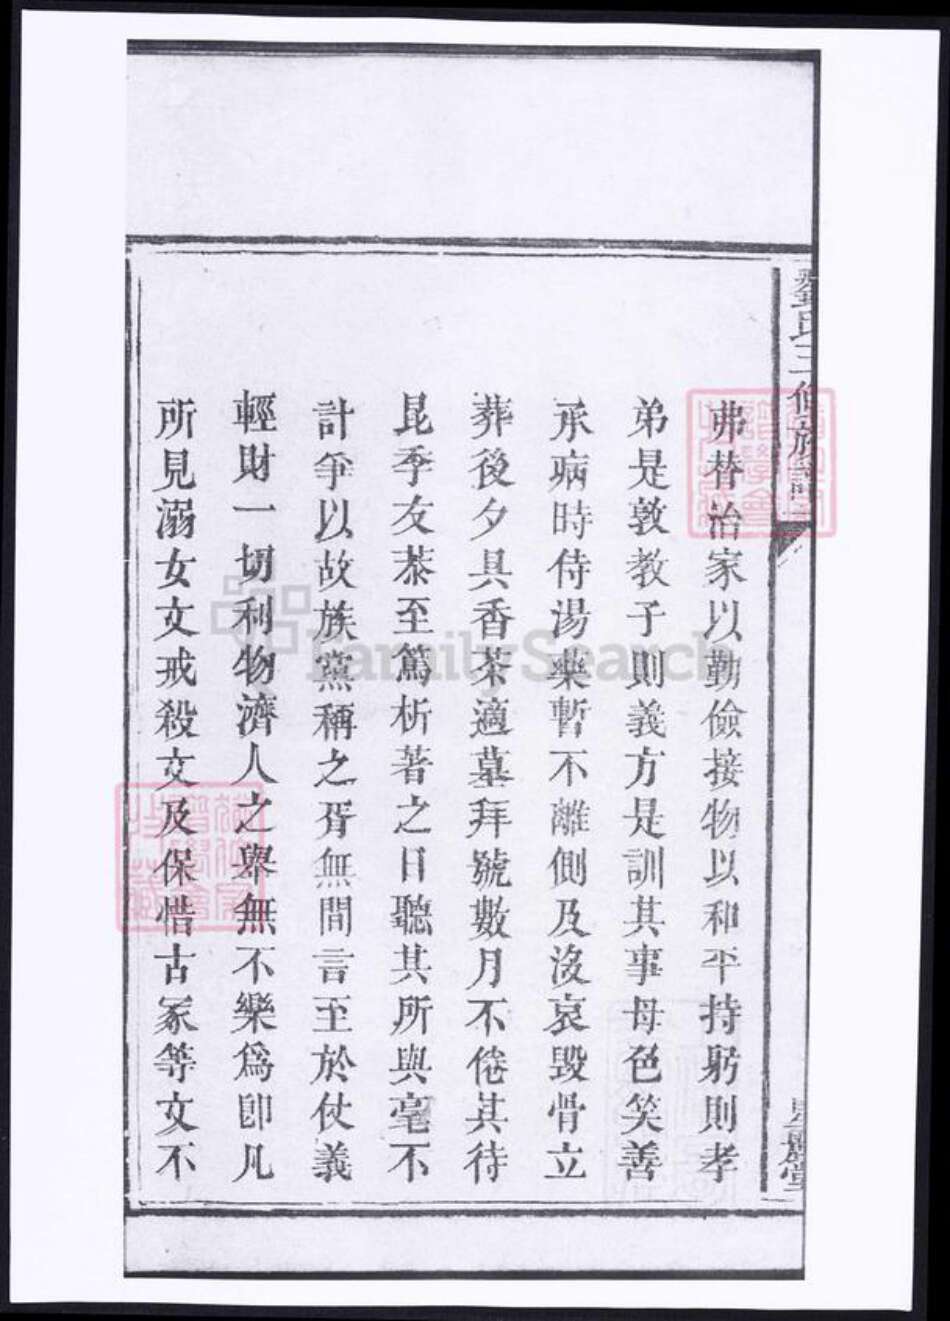 劉氏三修族譜
弗替治家以勤儉接物以和平持躬則孝
弟是敦教子則義方是訓其事母色笑善
承病時侍湯藥暫不離側及沒哀毀骨立
葬後夕具香茶適墓拜號數月不倦其待
昆季友恭至篤析著之日聽其所與毫不
計爭以故族黨稱之胥無間言至於仗義
輕財一切利物濟人之舉無不樂為卽凡
所見溺女文戒殺文及保惜古冢等文不
FamilySearch